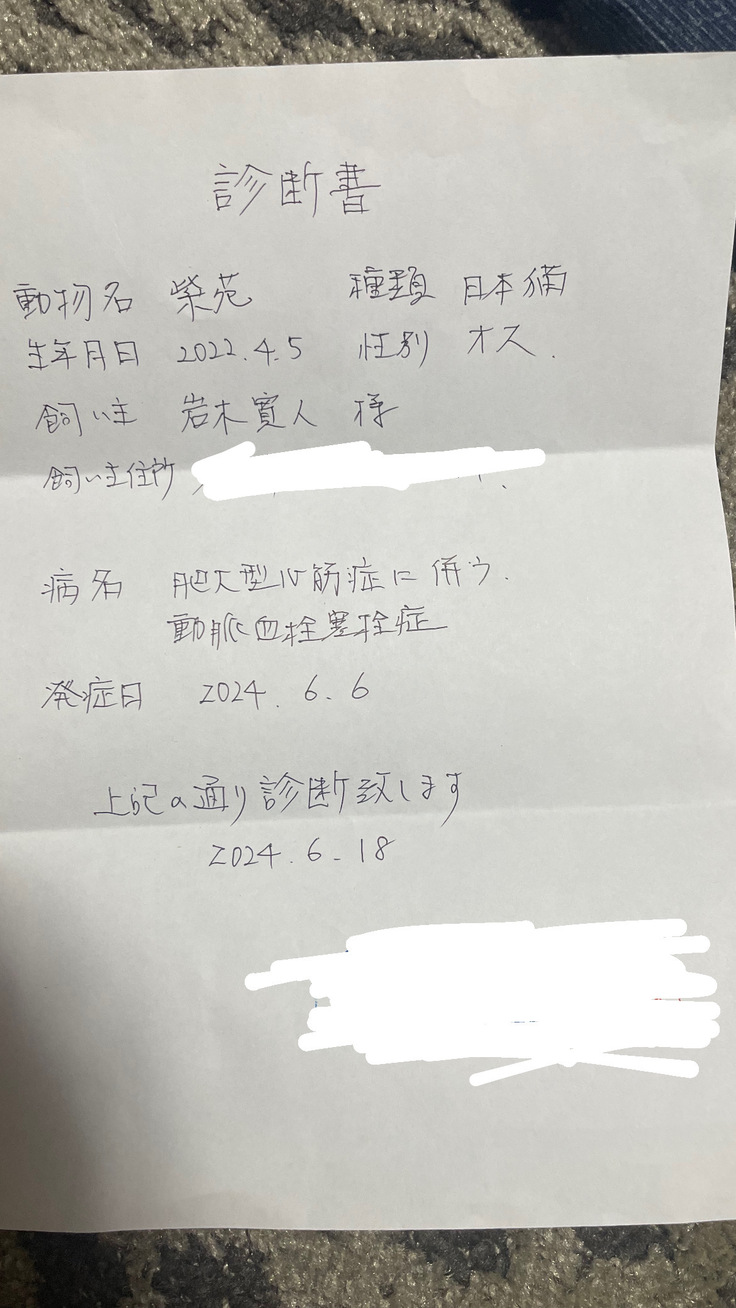 診断書
動物名 紫苑 種類 日本猫
生年月日 2022.4.5 性別 オス.
飼い主 岩木寛人 様
飼い主住所
病名 肥大型心筋症に併う.
動脈血栓塞栓症
発症日 2024.6.6
上記の通り診断致します
2024.6.18